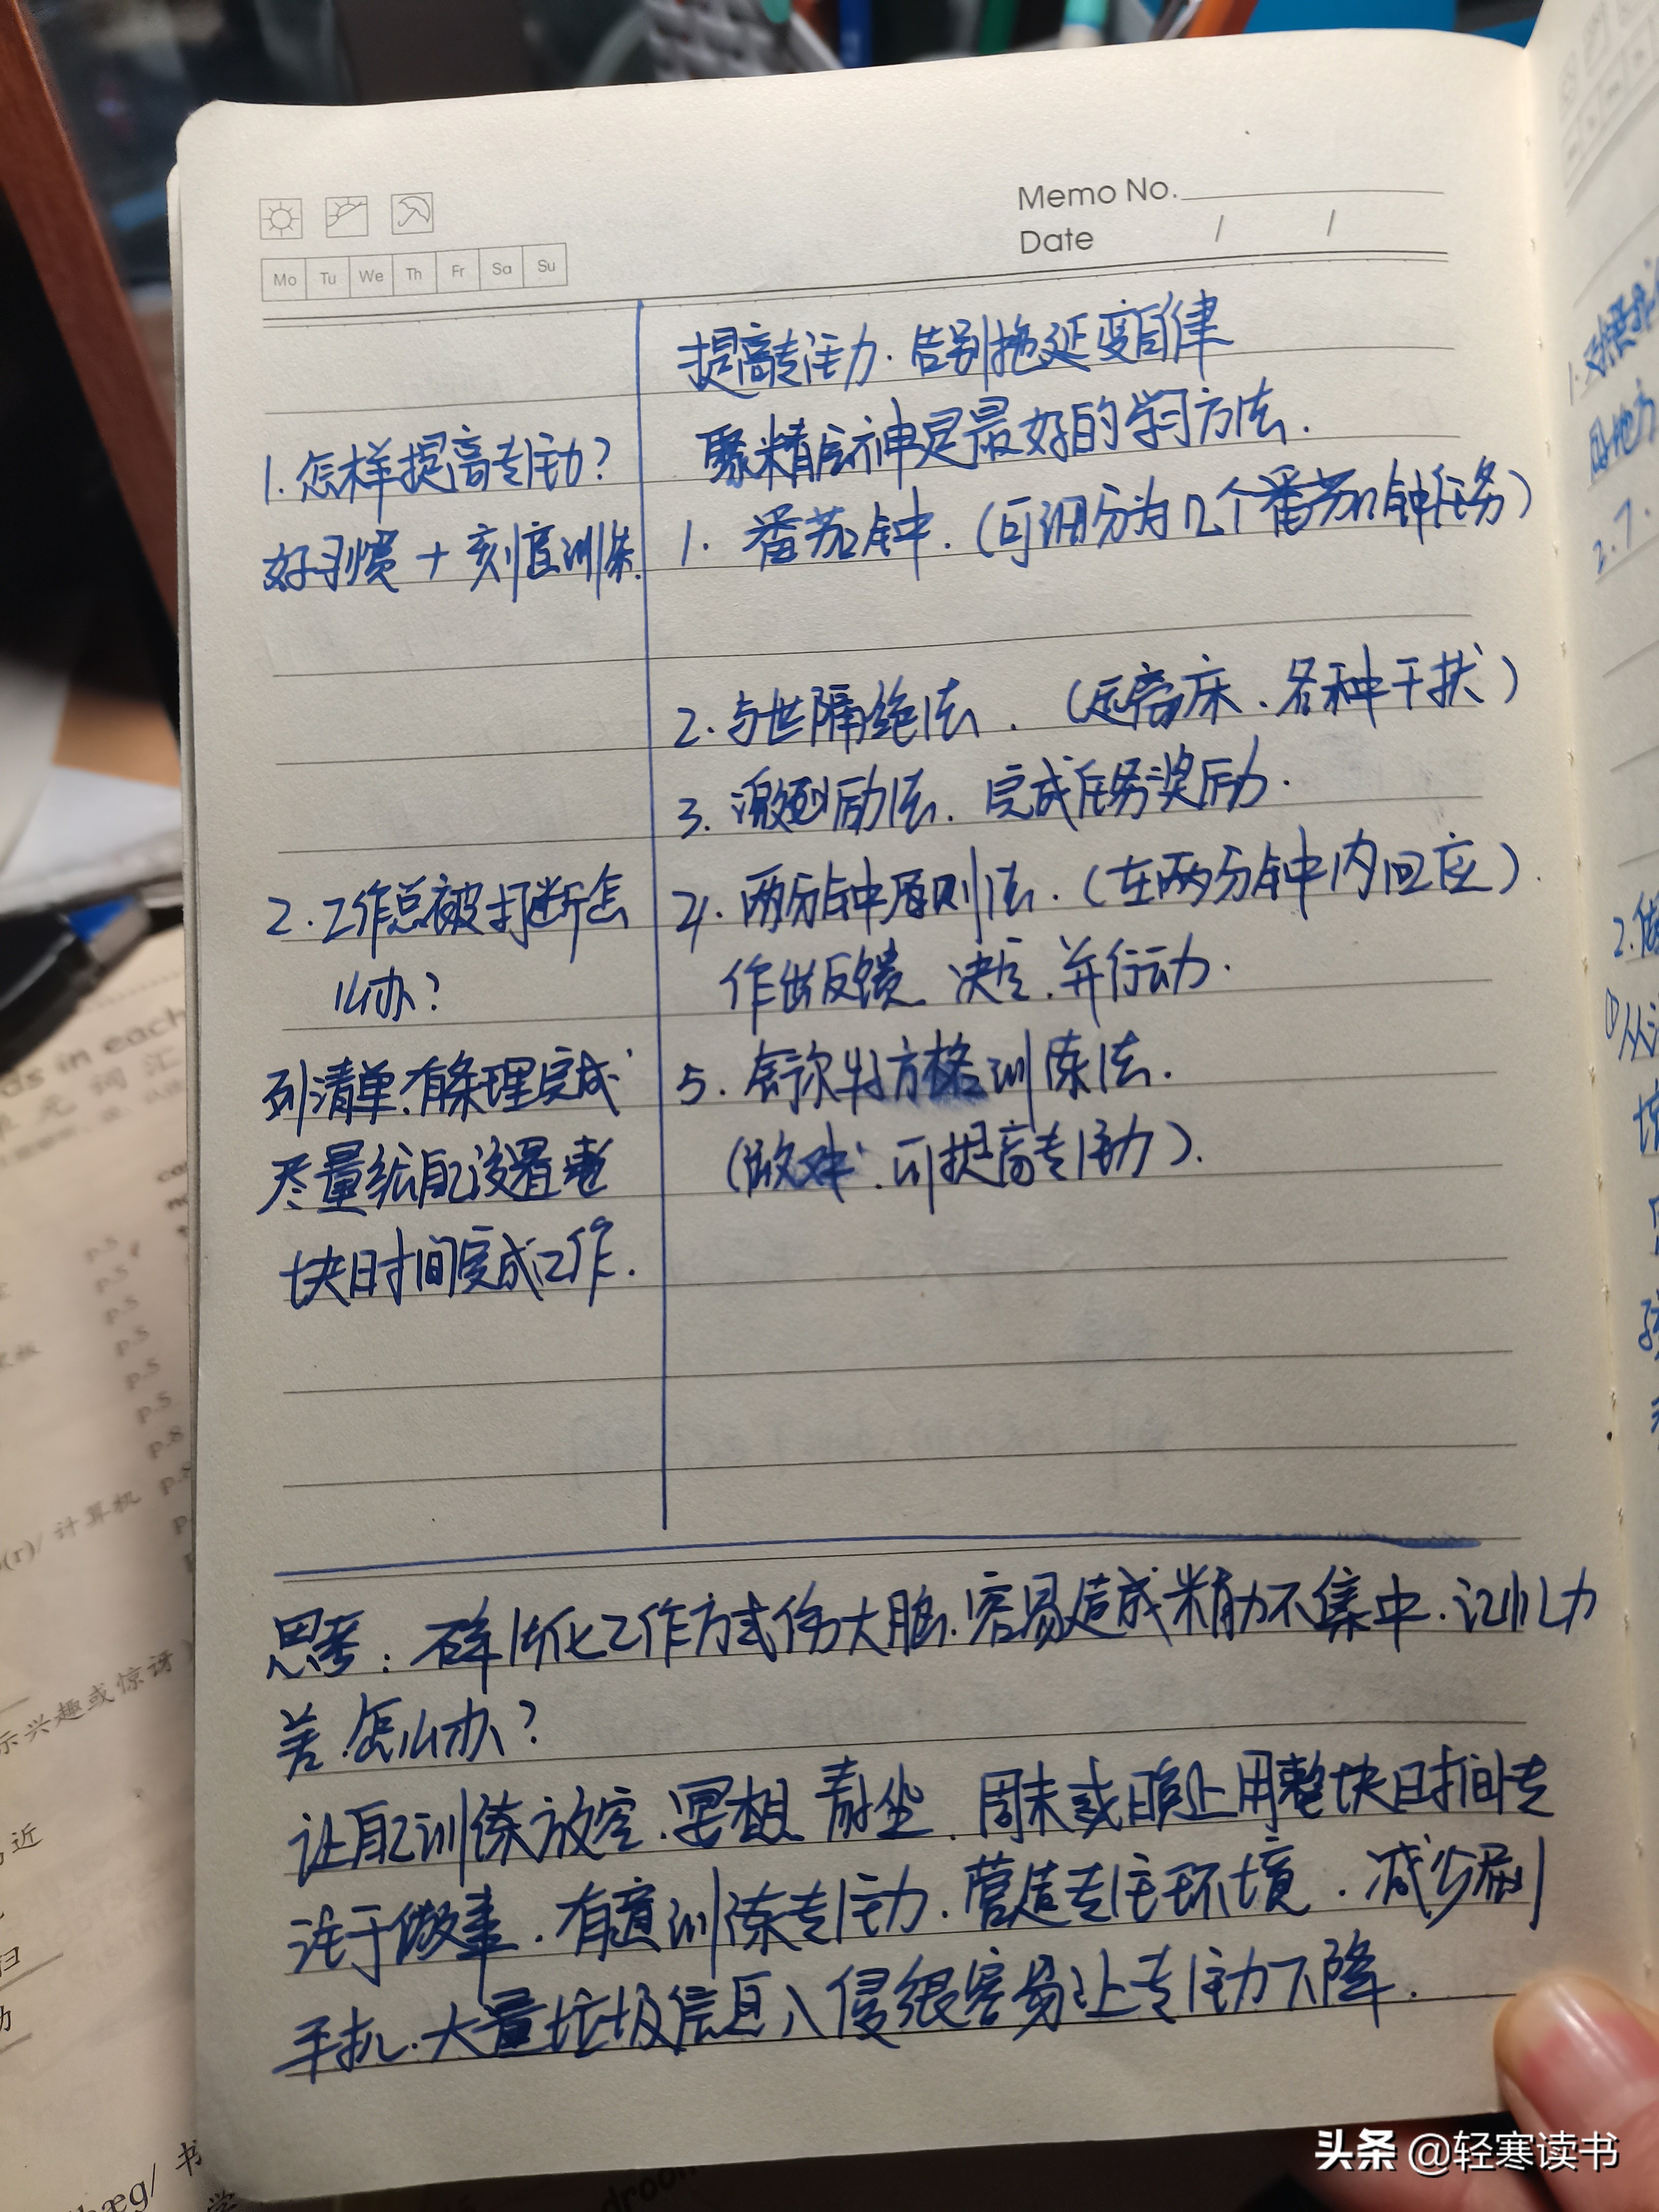 Memo No.
Date / /
Mo Tu We Th Fr Sa Su
提高专注力.告别拖延变自律
聚精会神是最好的学习方法.
1.怎样提高专注力?
好习惯+刻意训练.
1.番茄钟.(可细分为几个番茄钟任务)
2.与世隔绝法.(远离床、各种干扰)
3.激励法.完成任务奖励.
2.工作总被打断怎
么办?
列清单.有条理完成.
尽量给自己设置整
块时间完成工作.
4.两分钟原则法.(在两分钟内回应).
作出反馈、决定、并行动.
5.舒尔特方格训练法.
(游戏.可提高专注力).
思考:碎片化工作方式伤大脑.容易造成精力不集中.记忆力
差.怎么办?
让自己训练放空.冥想.静坐.周末或晚上用整块时间专
注于做事.有意训练专注力.营造专注环境.减少刷
手机.大量垃圾信息入侵很容易让专注力下降.
ds in each
单元词汇
p.5
p.5
p.5
p.5
p.5
p.5
p.8
(r)/ 计算机
示兴趣或惊讶
近
bæg/ 书
droom
头条 @轻寒读书